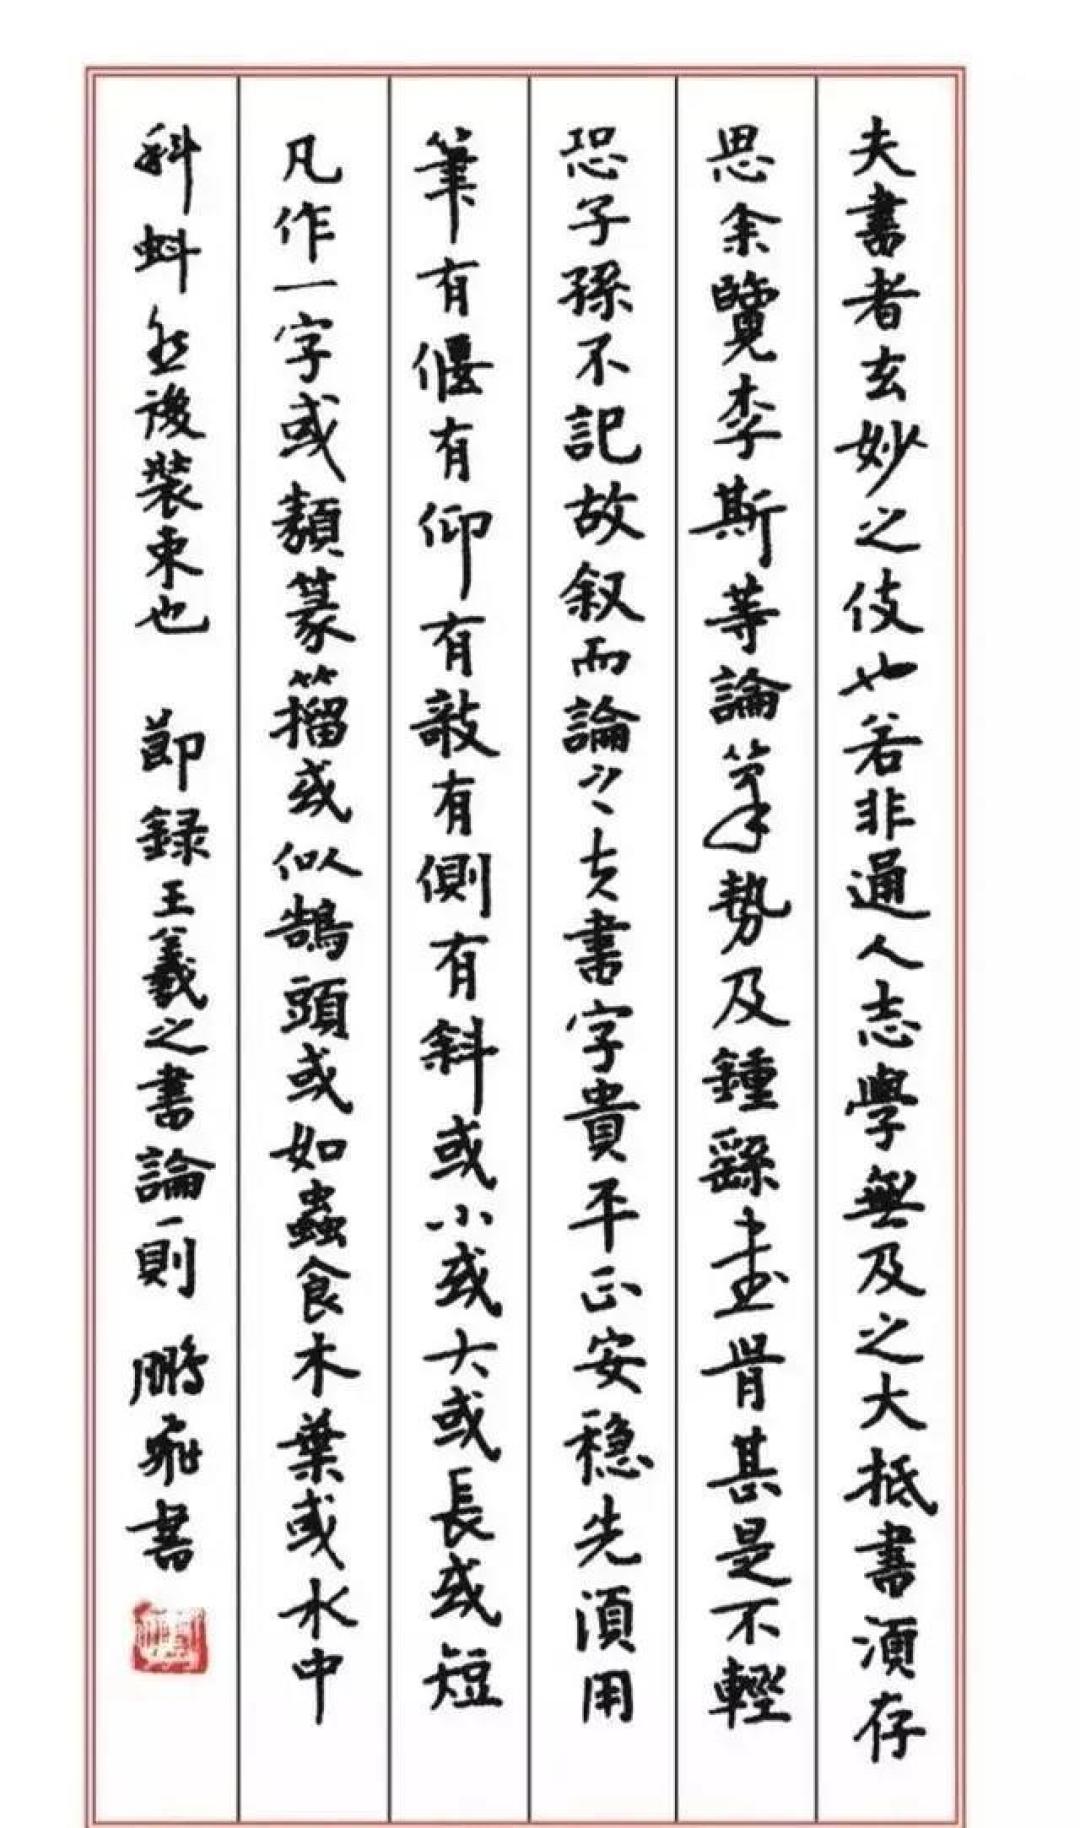 夫書者玄妙之伎也若非通人志學無及之大抵書須存
思余覽李斯等論筆勢及鍾繇書骨甚是不輕
恐子孫不記故叙而論之夫書字貴平正安穩先須用
筆有偃有仰有敧有側有斜或小或大或長或短
凡作一字或類篆籀或似鵠頭或如蟲食木葉或水中
科蚪然後裝束也 節録王羲之書論一則 鵬飛書